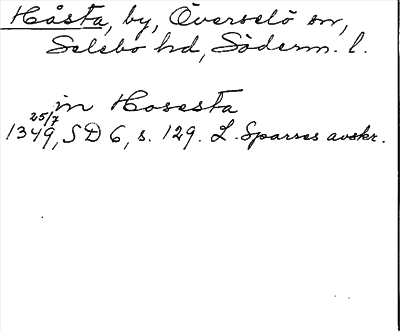 Håsta, by, Överselö sn,
Selebo hd, Söderm. l.
in Hosesta
25/7
1349, SD 6, s. 129. L. Sparres avskr.